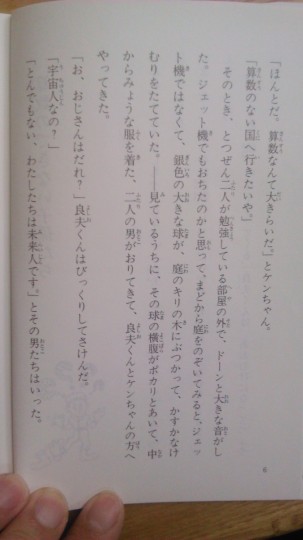 「ほんとだ。算数なんて大きらいだ。」とケンちゃん。
「算数のない国へ行きたいや。」
そのとき、とつぜん二人が勉強している部屋の外で、ドーンと大きな音がし
た。ジェット機でもおちたのかと思って、まどから庭をのぞいてみると、ジェッ
ト機ではなくて、銀色の大きな球が、庭のキリの木にぶつかって、かすかなけ
むりをたてていた。――見ているうちに、その球の横腹がポカリとあいて、中
からみょうな服を着た、二人の男がおりてきて、良夫くんとケンちゃんの方へ
やってきた。
「お、おじさんはだれ?」良夫くんはびっくりしてさけんだ。
「宇宙人なの?」
「とんでもない、わたしたちは未来人です。」とその男たちはいった。
6